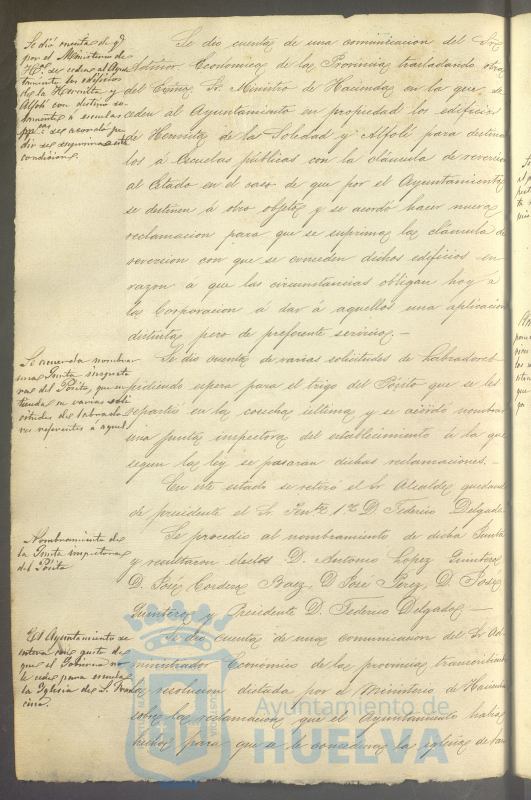 Se dió cuenta de qe
por el Ministerio de
Hda se ceden al Ayun
tamiento los edificios
de la Hermita y
Alfolí con destino so-
lamente á escuelas
pcas: se acordó pe-
dir se suprima esta
condicion.
Se dio cuenta de una comunicacion del Sr.
Economico de la Provincia trasladando otra
del Exmo. Sr. Ministro de Hacienda en la que se
ceden al Ayuntamiento en propiedad los edificios
de Hermita de la Soledad y Alfolí para destinar
los á Escuelas públicas con la cláusula de reversion
al Estado en el caso de que por el Ayuntamiento
se destinen á otro objeto y se acordó hacer nueva
reclamacion para que se suprima la cláusula de
reversion con que se conceden dichos edificios en
razon á que las circunstancias obligan hoy á
la Corporacion á dar á aquellos una aplicacion
distinta pero de preferente servicio.—
Se acuerda nombrar
una Junta inspecto-
ra del Pósito, que en
tienda en varias soli
citudes de labrado
res referentes á aquel
Se dio cuenta de varias solicitudes de Labradores
pidiendo espera para el trigo del Pósito que se les
repartió en la cosecha última y se acordó nombrar
una junta inspectora del establecimiento á la que
segun la ley se pasaran dichas reclamaciones.—
En este estado se retiró el Sr. Alcalde quedando
de presidente el Sr. Tente 1º D. Federico Delgado
Nombramiento de
la Junta inspectora
del Pósito
Se procedio al nombramiento de dicha Junta
y resultaron electos D. Antonio Lopez Quintero
D. José Cordero Baez, D. José Perez, D. José
Quintero y Presidente D. Federico Delgado—
El Ayuntamiento se
entera con gusto de
que el Gobierno
le cede para escuela
la Iglesia de S. Fran
cisco.
Se dió cuenta de una comunicacion del Sr. Ad
ministrador Económico de la provincia, transcribiendo
resolucion dictada por el Ministerio de Hacienda
sobre la reclamacion que el Ayuntamiento habia
hecho para que se le concediera la iglesia de San
Ayuntamiento de
HUELVA